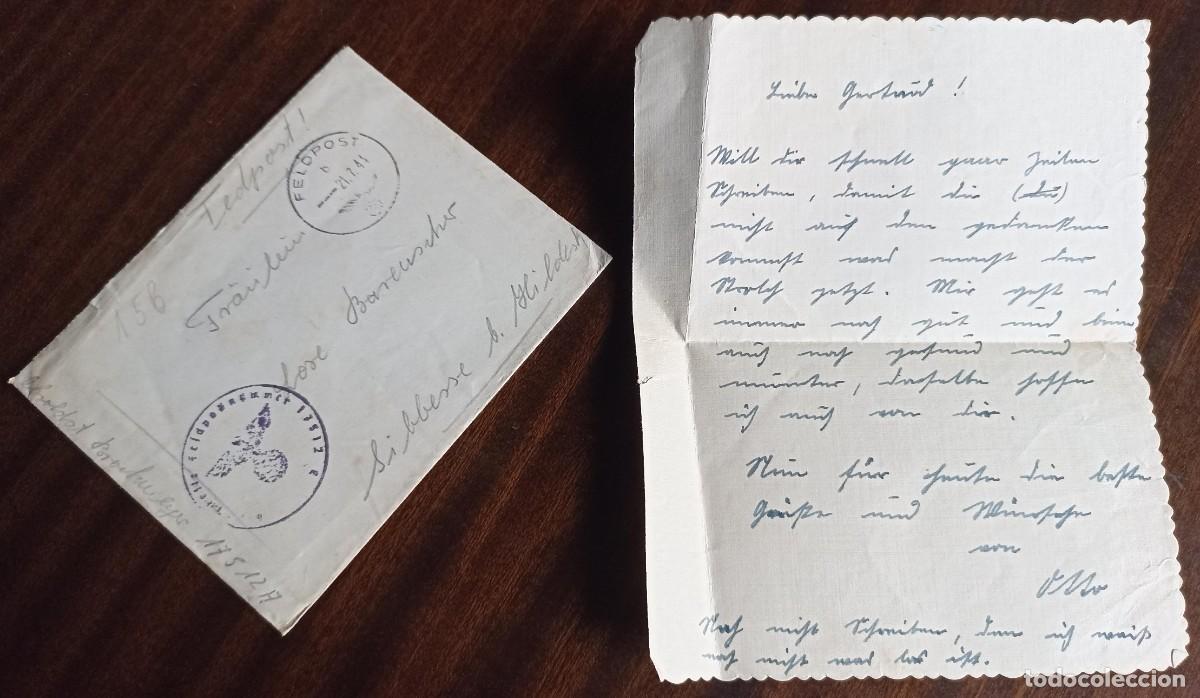 Feldpost!
FELDPOST
b
21.7.41
156
Fräulein
Lore Barenscher
Sibbesse b. Hildesh
Feldpostnummer 17512
17512A
Liebe Gertrud!
Will dir schnell paar Zeilen
Schreiben, damit du (du)
nicht auf den gedanken
kommst was macht der
Strolch jetzt. Mir geht es
immer noch gut und bin
auch noch gesund und
munter, dasselbe hoffe
ich auch von dir.
Nun für heute die beste
Grüße und Wünsche
von
Otto
Noch nicht Schreiben, den ich weiß
noch nicht was los ist.
todocoleccion